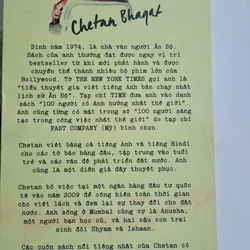 Chetan Bhagat
Sinh năm 1974, là nhà văn người Ấn Độ.
Sách của anh thường đạt được ngay vị trí
bestseller từ khi mới phát hành và được
chuyển thể thành nhiều bộ phim lớn của
Bollywood. Tờ THE NEW YORK TIMES gọi anh là
"tiểu thuyết gia viết tiếng Anh bán chạy nhất
lịch sử Ấn Độ". Tạp chí TIME đưa anh vào danh
sách "100 người có ảnh hưởng nhất thế giới".
Anh cũng từng có mặt trong số "100 người sáng
tạo trong công việc nhất thế giới" do tạp chí
FAST COMPANY (Mỹ) bình chọn.
Chetan viết bằng cả tiếng Anh và tiếng Hindi
cho các tờ báo hàng đầu, tập trung vào tuổi
trẻ và các vấn đề phát triển đất nước. Anh
cũng là một diễn giả đầy thuyết phục.
Chetan bỏ việc tại một ngân hàng đầu tư quốc
tế vào năm 2009 để cống hiến toàn thời gian
cho viết lách và đem lại sự thay đổi cho đất
nước. Anh sống ở Mumbai cùng vợ là Anusha,
một người bạn học cũ, và hai cậu con trai
sinh đôi Shyam và Ishaan.
Các cuốn sách nổi tiếng nhất của Chetan có